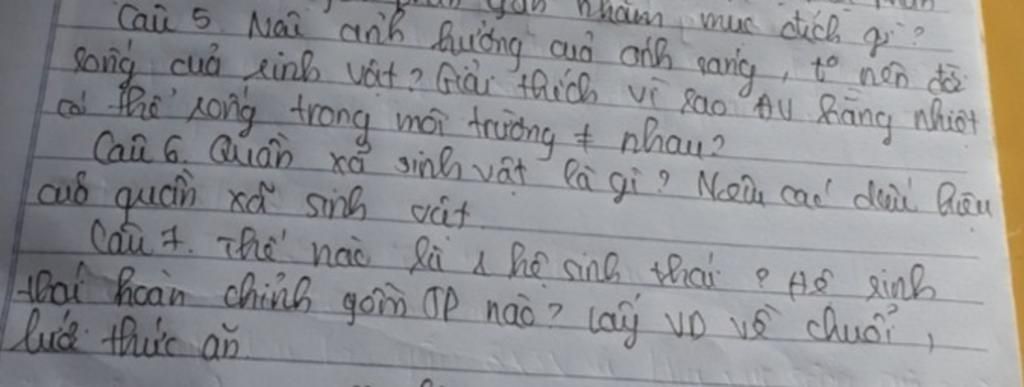 nhằm mục đích gì?
Câu 5. Nêu ảnh hưởng của ánh sáng, t° nên đời
sống của sinh vật? Giải thích vì sao ĐV hằng nhiệt
có thể sống trong môi trường ≠ nhau?
Câu 6. Quần xã sinh vật là gì? Nêu các dấu hiệu
của quần xã sinh vật
Câu 7. Thế nào là 1 hệ sinh thái? Hệ sinh
thái hoàn chỉnh gồm TP nào? Lấy VD về chuỗi,
lưới thức ăn